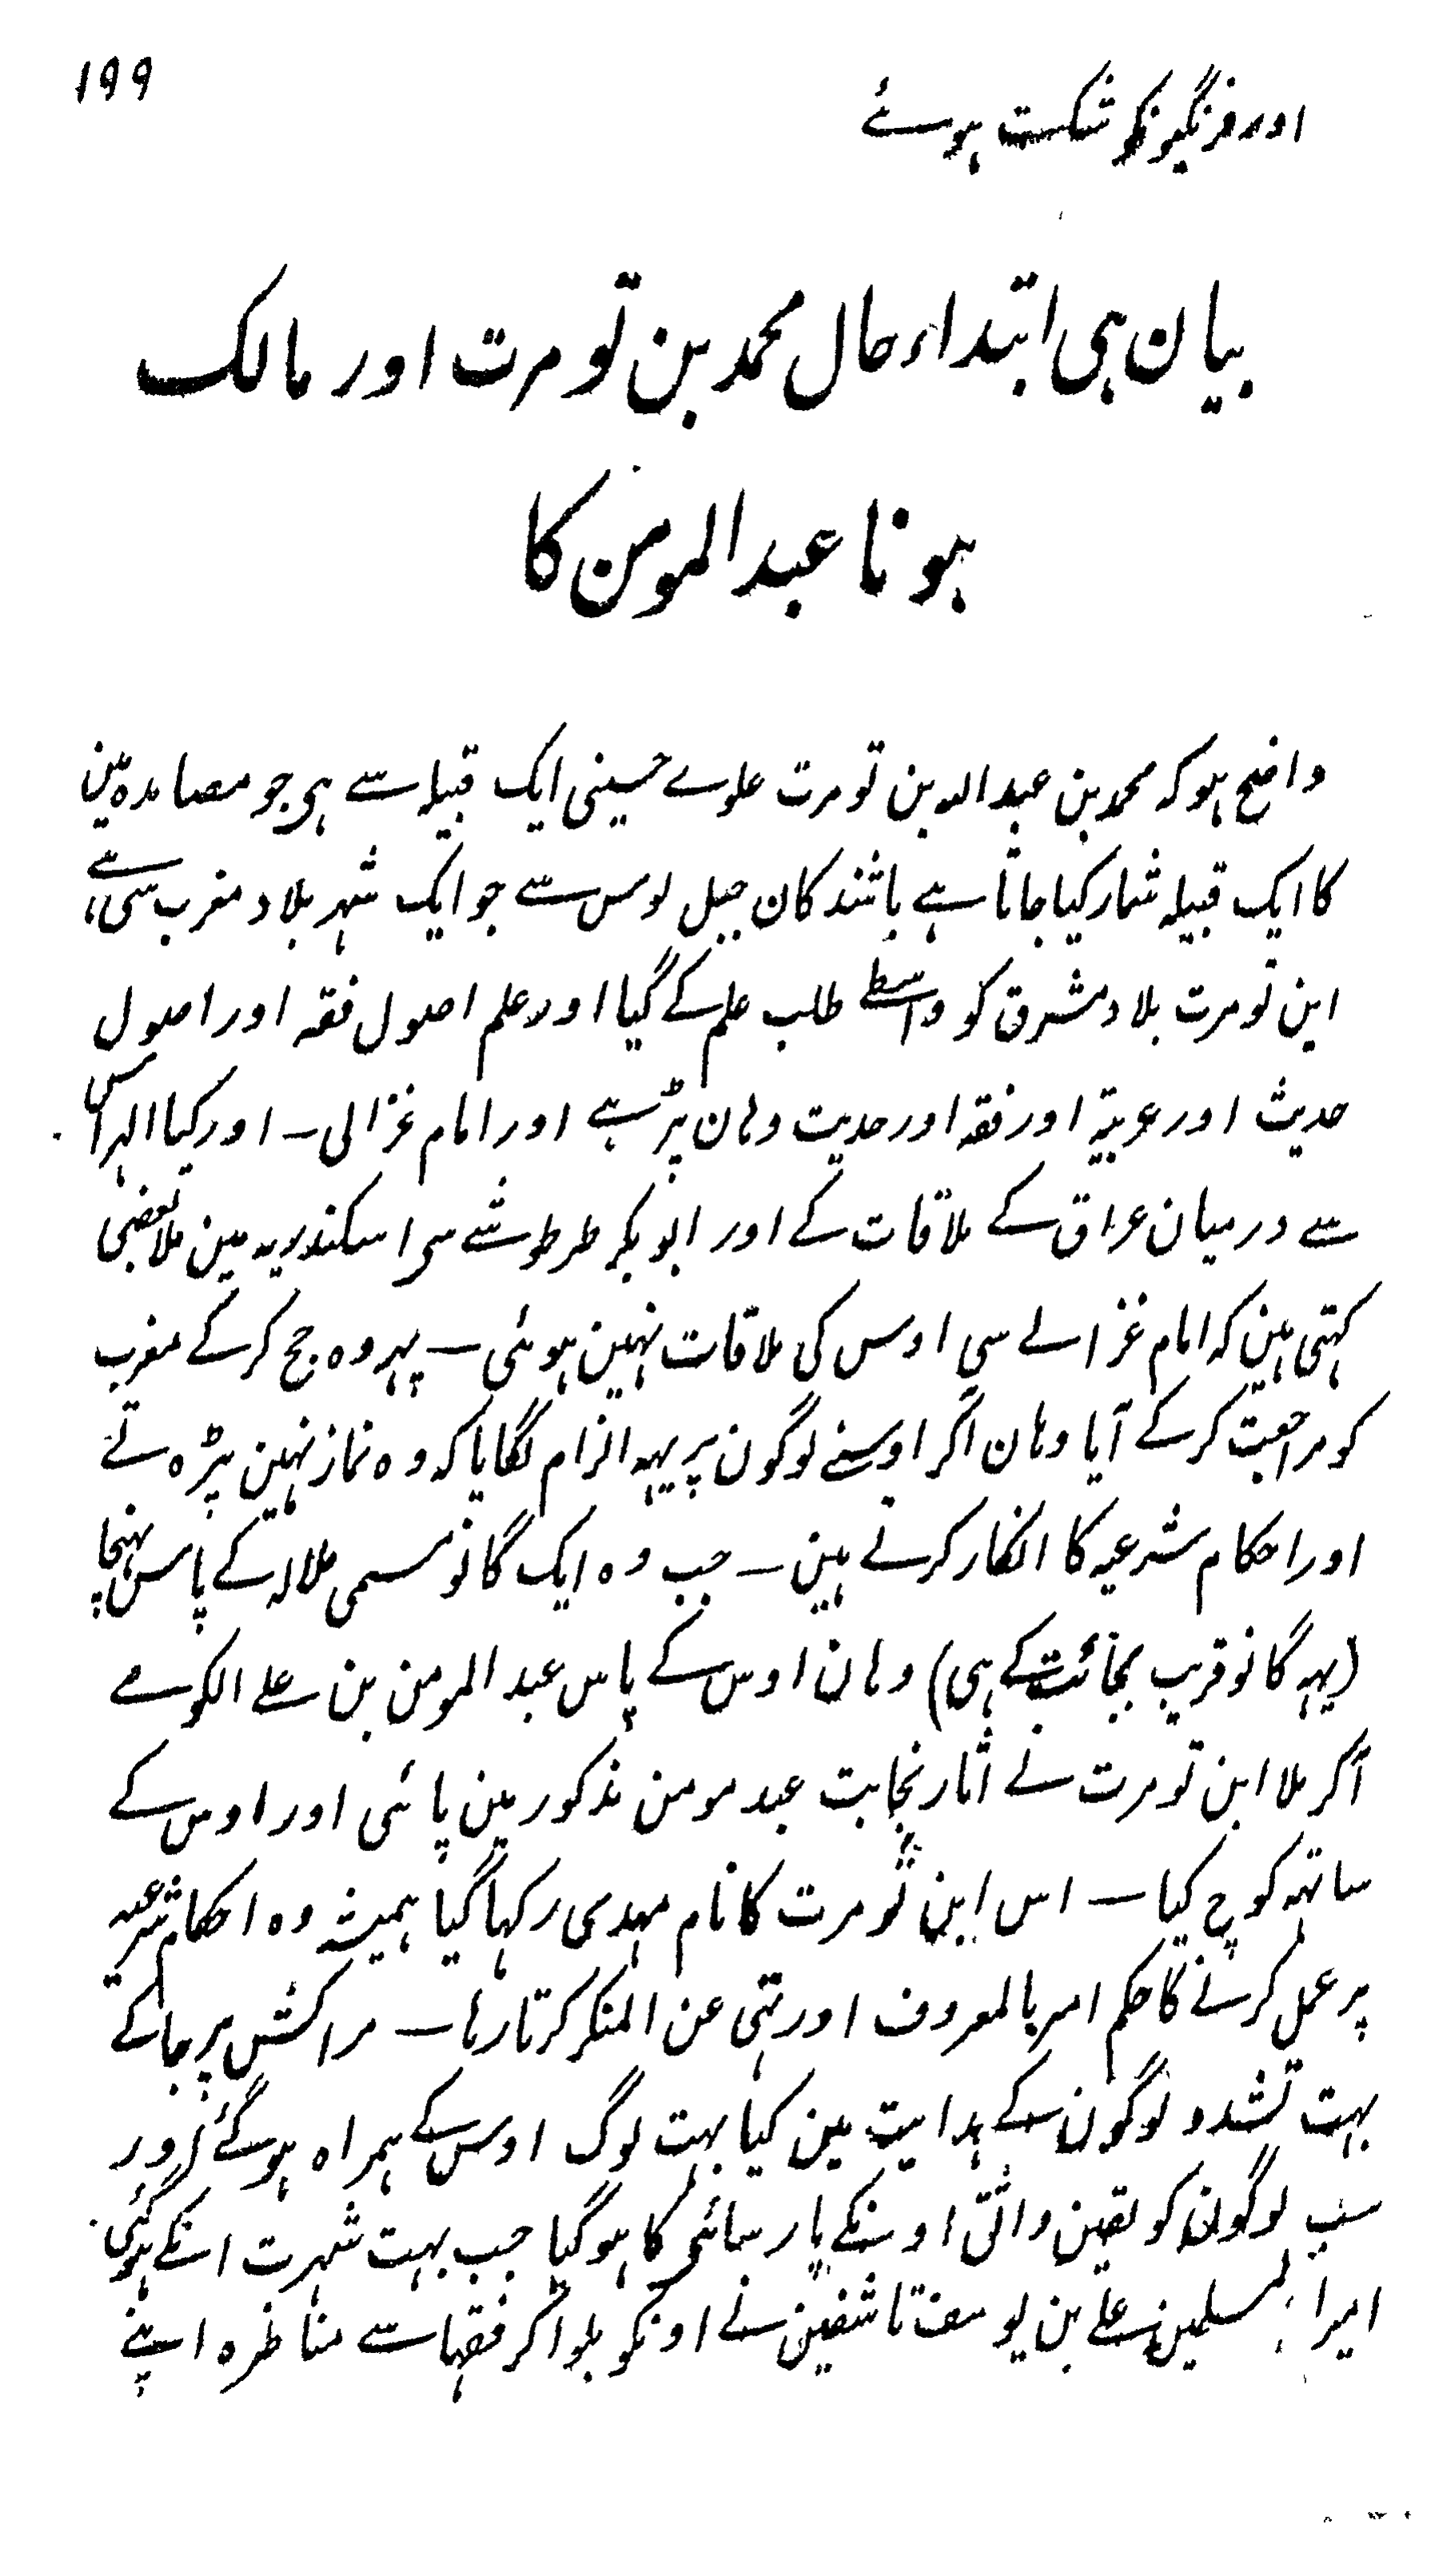 ۱۹۹
اور فرنگیونکو شکست ہوئے
بیان ہی ابتداء حال محمد بن تومرت اور مالک
ہونا عبد المومن کا
واضح ہو کہ محمد بن عبد اللہ بن تومرت علوے حسینی ایک قبیلہ سے ہی جو مصامدہ مین
کا ایک قبیلہ شمار کیا جاتا ہے باشندکان جبل لوس سے جو ایک شہر بلاد مغرب سی ہے
ابن تومرت بلاد مشرق کو واسطے طلب علم کے گیا اور علم اصول فقہ اور اصول
حدیث اور عربیۃ اور فقہ اور حدیت وہان پڑہے اور امام غزالی ۔ اور کیا الہراس
سے درمیان عراق کے ملاقات کے اور ابو بکر طرطوشے سی اسکندریہ مین ملا بعضی
کہتی ہین کہ امام غزالے سی اوس کی ملاقات نہین ہوئی ۔ پہر وہ حج کر کے مغرب
کو مراجعت کر کے آیا وہان آکر اوسنے لوگون پر یہہ الزام لگایا کہ وہ نماز نہین پڑہ تے
اور احکام شرعیہ کا انکار کرتے ہین ۔ جب وہ ایک گانو مسمی ملالہ کے پاس پہنچا
(یہہ گانو قریب بجائت کے ہی) وہان اوس کے پاس عبد المومن بن علے الکومے
آکر ملا ابن تومرت نے آثار نجابت عبد مومن مذکور مین پائی اور اوس کے
ساتہہ کوچ کیا ۔ اس ابن تومرت کا نام مہدی رکہا گیا ہمیشہ وہ احکام شرعیہ
پر عمل کرنے کا حکم امر بالمعروف اور نہی عن المنکر کرتا رہا ۔ مراکش پر جا کے
بہت تشدد لوگون کے ہدایت مین کیا بہت لوگ اوس کے ہمراہ ہو گئے اور
سب لوگون کو یقین واثق اونکے پارسائی کا ہو گیا جب بہت شہرت انکے ہو گئی
امیر المسلمین علے بن یوسف تاشفین نے اونکو بلوا کر فقہا سے مناظرہ اپنے